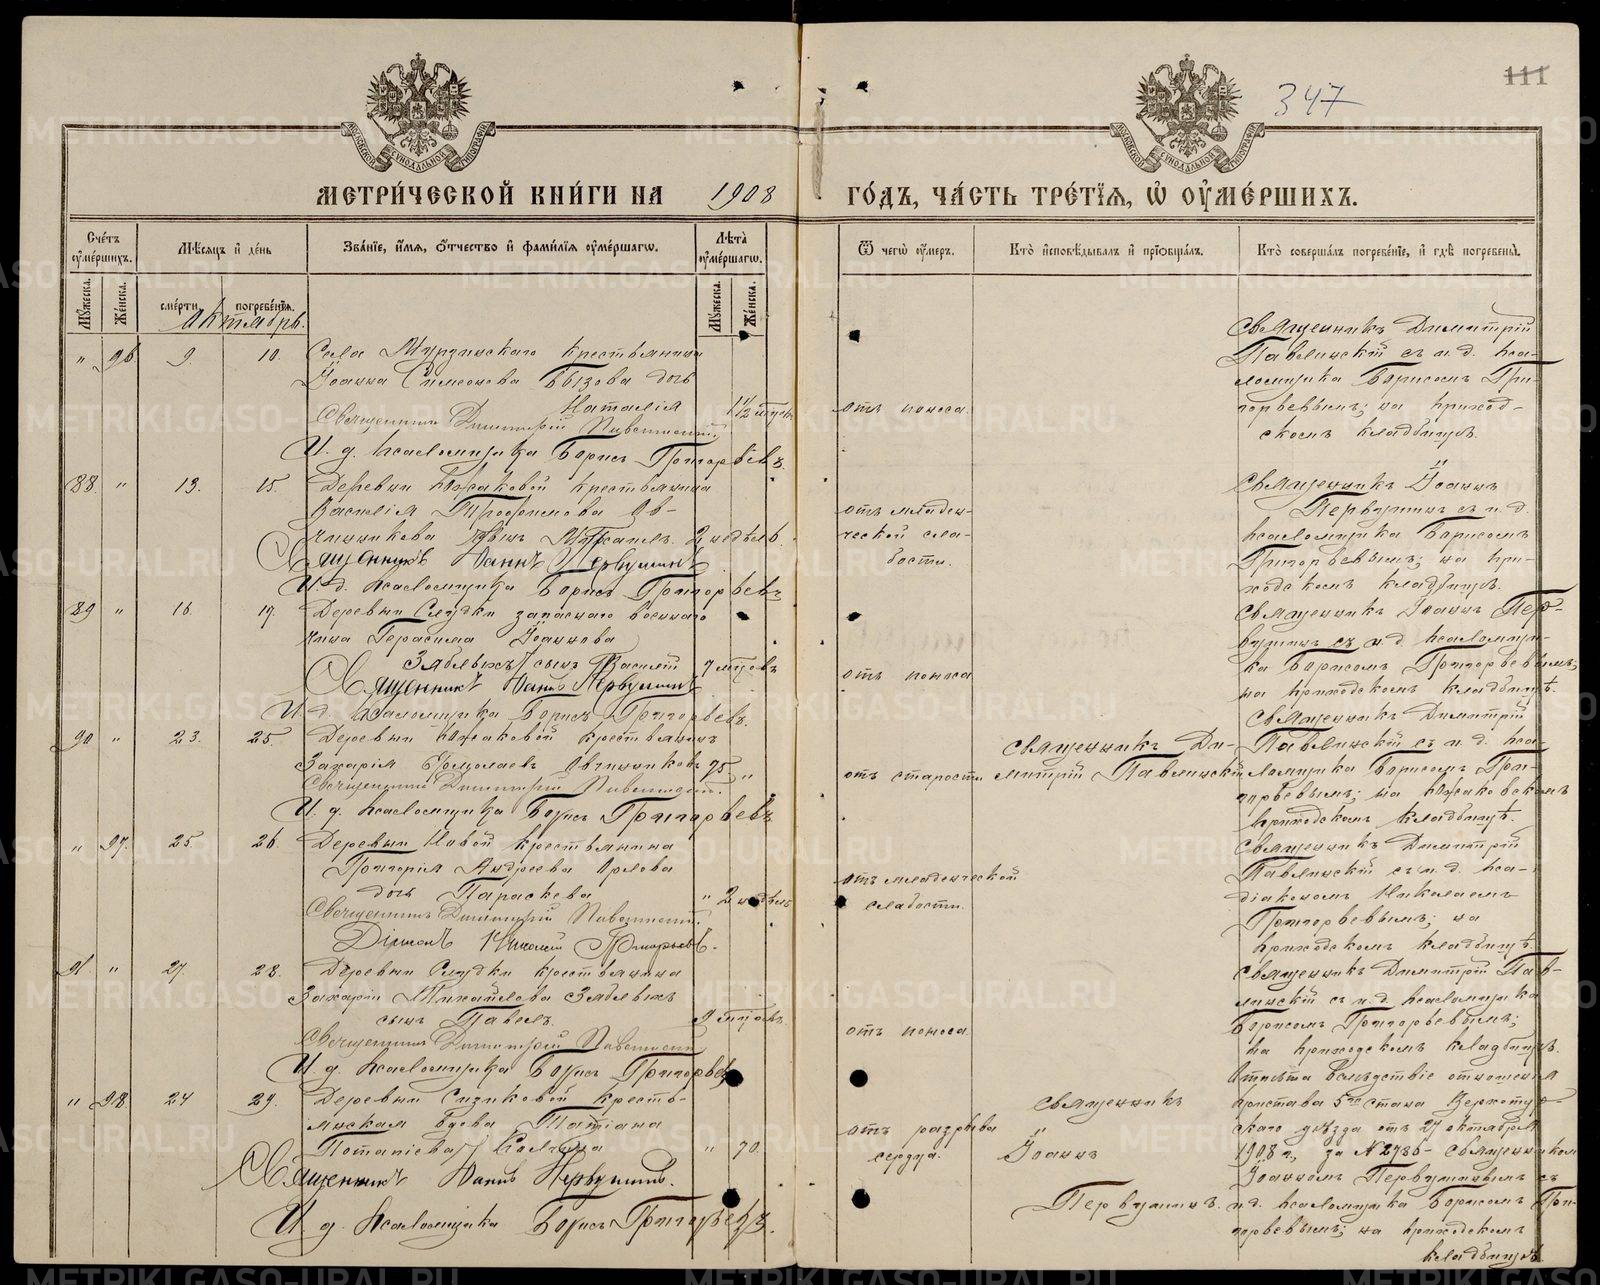 111
347
МЕТРИ́ЧЕСКОЙ КНИ́ГИ НА 1908 ГО́ДЪ, ЧА́СТЬ ТРЕ́ТІЯ, Ѡ ОУМЕ́РШИХЪ.
Сче́тъ оуме́ршихъ.
Мѣсяцъ и де́нь
Зва́ніе, и́мя, о́тчество и фами́лія оуме́ршагѡ.
Лѣта̀ оуме́ршагѡ.
Ѿ чегѡ̀ оу́меръ.
Кто̀ исповѣ́дывалъ и пріѡбща́лъ.
Кто̀ соверша́лъ погребе́ніе, и гдѣ̀ погребены̀.
Му́жеска.
Же́нска.
сме́рти
погребе́нія.
Му́жеска.
Же́нска.
Октябрь.
" 96 9. 10.
Села Мурзинскаго крестьянина
Іоанна Симеонова Бызова дочь
Наталія
Священникъ Димитрій Павлинскій
И. д. псаломщика Борисъ Григорьевъ.
отъ поноса.
Священникъ Димитрій
Павлинскій съ и. д. пса-
ломщика Борисомъ Гри-
горьевымъ; на приход-
скомъ кладбищѣ.
88 " 13. 15.
Деревни Южаковой крестьянина
Василія Трофимова Ов-
чинникова сынъ Михаилъ. 2 недѣль.
Священникъ Іоаннъ Первушинъ
И. д. псаломщика Борисъ Григорьевъ
отъ младен-
ческой сла-
бости.
Священникъ Іоаннъ
Первушинъ съ и. д.
псаломщика Борисомъ
Григорьевымъ; на при-
ходскомъ кладбищѣ.
89 " 16 17.
Деревни Слудки запаснаго военнаго
чина Герасима Іоаннова
Зяблыхъ сынъ Василій 7 мѣсцевъ
Священникъ Іоаннъ Первушинъ
И. д. псаломщика Борисъ Григорьевъ.
отъ поноса
Священникъ Іоаннъ Пер-
вушинъ съ и. д. псаломщи-
ка Борисомъ Григорьевымъ;
на приходскомъ кладбищѣ.
90 " 23. 25.
Деревни Южаковой крестьянинъ
Захарія Ермолаевъ Овчинниковъ 75 "
Священникъ Димитрій Павлинскій.
И. д. псаломщика Борисъ Григорьевъ
отъ старости
Священникъ Ди-
митрій Павлинскій
Священникъ Димитрій
Павлинскій съ и. д. пса-
ломщика Борисомъ Гри-
горьевымъ; на Южаковскомъ
приходскомъ кладбищѣ.
" 97. 25 26.
Деревни Новой крестьянина
Григорія Андреева Орлова
дочь Параскева " 2 недѣль
Священникъ Димитрій Павлинскій.
Діаконъ Николай Григорьевъ.
отъ младенческой
слабости.
Священникъ Димитрій
Павлинскій съ и. д. пса-
діакономъ Николаемъ
Григорьевымъ; на
приходскомъ кладбищѣ.
91. " 27. 28.
Деревни Слудки крестьянина
Захарія Михайлова Зяблыхъ
сынъ Павелъ. 9 мѣсцевъ.
Священникъ Димитрій Павлинскій
И. д. псаломщика Борисъ Григорьевъ
отъ поноса
Священникъ Димитрій Пав-
линскій съ и. д. псаломщика
Борисомъ Григорьевымъ;
на приходскомъ кладбищѣ.
" 98. 24 29.
Деревни Сизиковой кресть-
янская вдова Татіана
Потапіева " 70.
Священникъ Іоаннъ Первушинъ.
И. д. псаломщика Борисъ Григорьевъ.
отъ разрыва
сердца.
Священникъ
Іоаннъ
Первушинъ.
Отпѣта вслѣдствіе отношенія
пристава 5го стана Верхотур-
скаго уѣзда отъ 27 октября
1908 г., за № 2786 - священникомъ
Іоанномъ Первушинымъ съ
и. д. псаломщика Борисомъ Гри-
горьевымъ; на приходскомъ
кладбищѣ.
METRIKI.GASO-URAL.RU